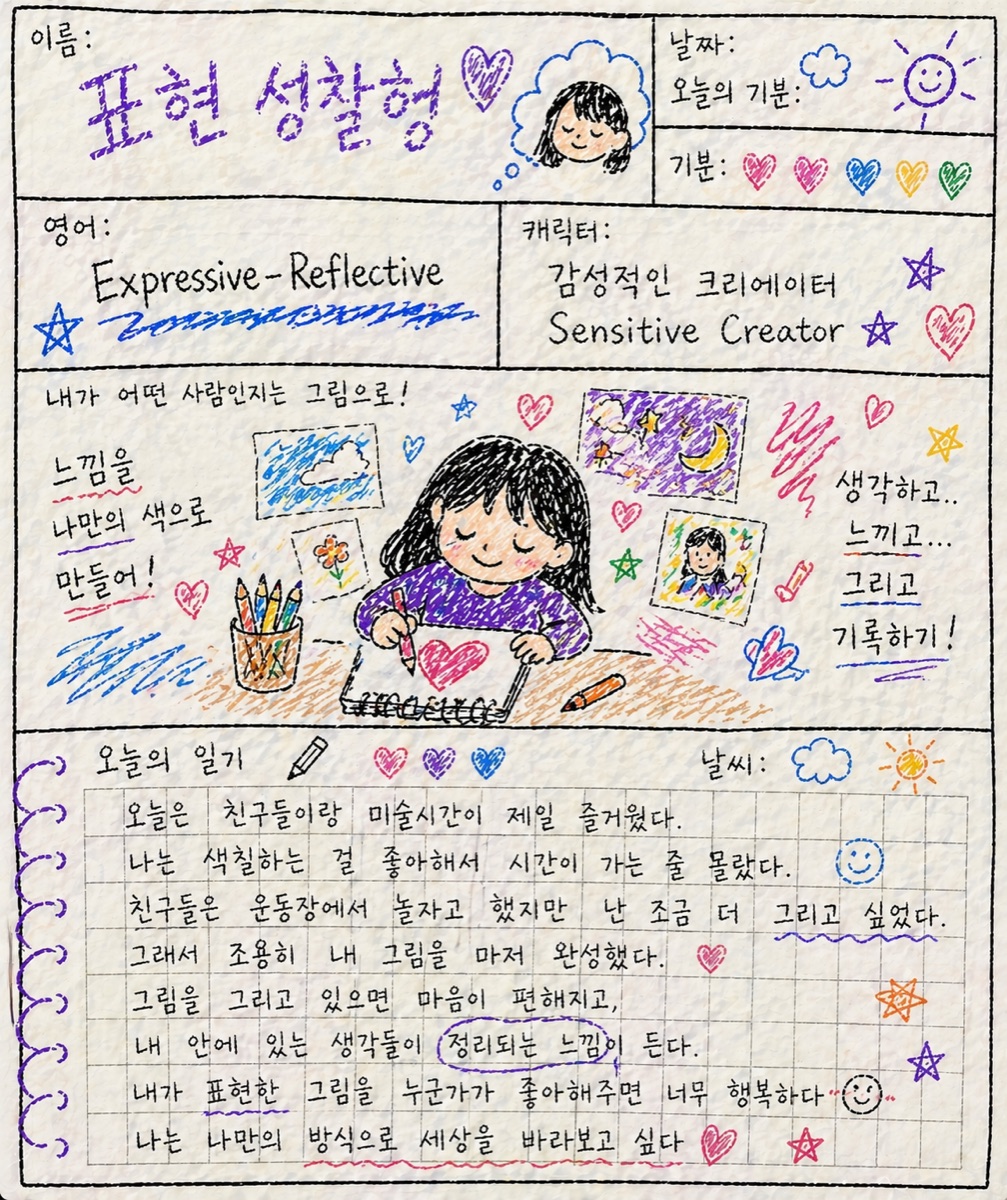 이름:
표현 성찰형
날짜:
오늘의 기분:
기분:
영어:
Expressive-Reflective
캐릭터:
감성적인 크리에이터
Sensitive Creator
내가 어떤 사람인지는 그림으로!
느낌을
나만의 색으로
만들어!
생각하고..
느끼고...
그리고
기록하기!
오늘의 일기
날씨:
오늘은 친구들이랑 미술시간이 제일 즐거웠다.
나는 색칠하는 걸 좋아해서 시간이 가는 줄 몰랐다.
친구들은 운동장에서 놀자고 했지만 난 조금 더 그리고 싶었다.
그래서 조용히 내 그림을 마저 완성했다.
그림을 그리고 있으면 마음이 편해지고,
내 안에 있는 생각들이 정리되는 느낌이 든다.
내가 표현한 그림을 누군가가 좋아해주면 너무 행복하다
나는 나만의 방식으로 세상을 바라보고 싶다